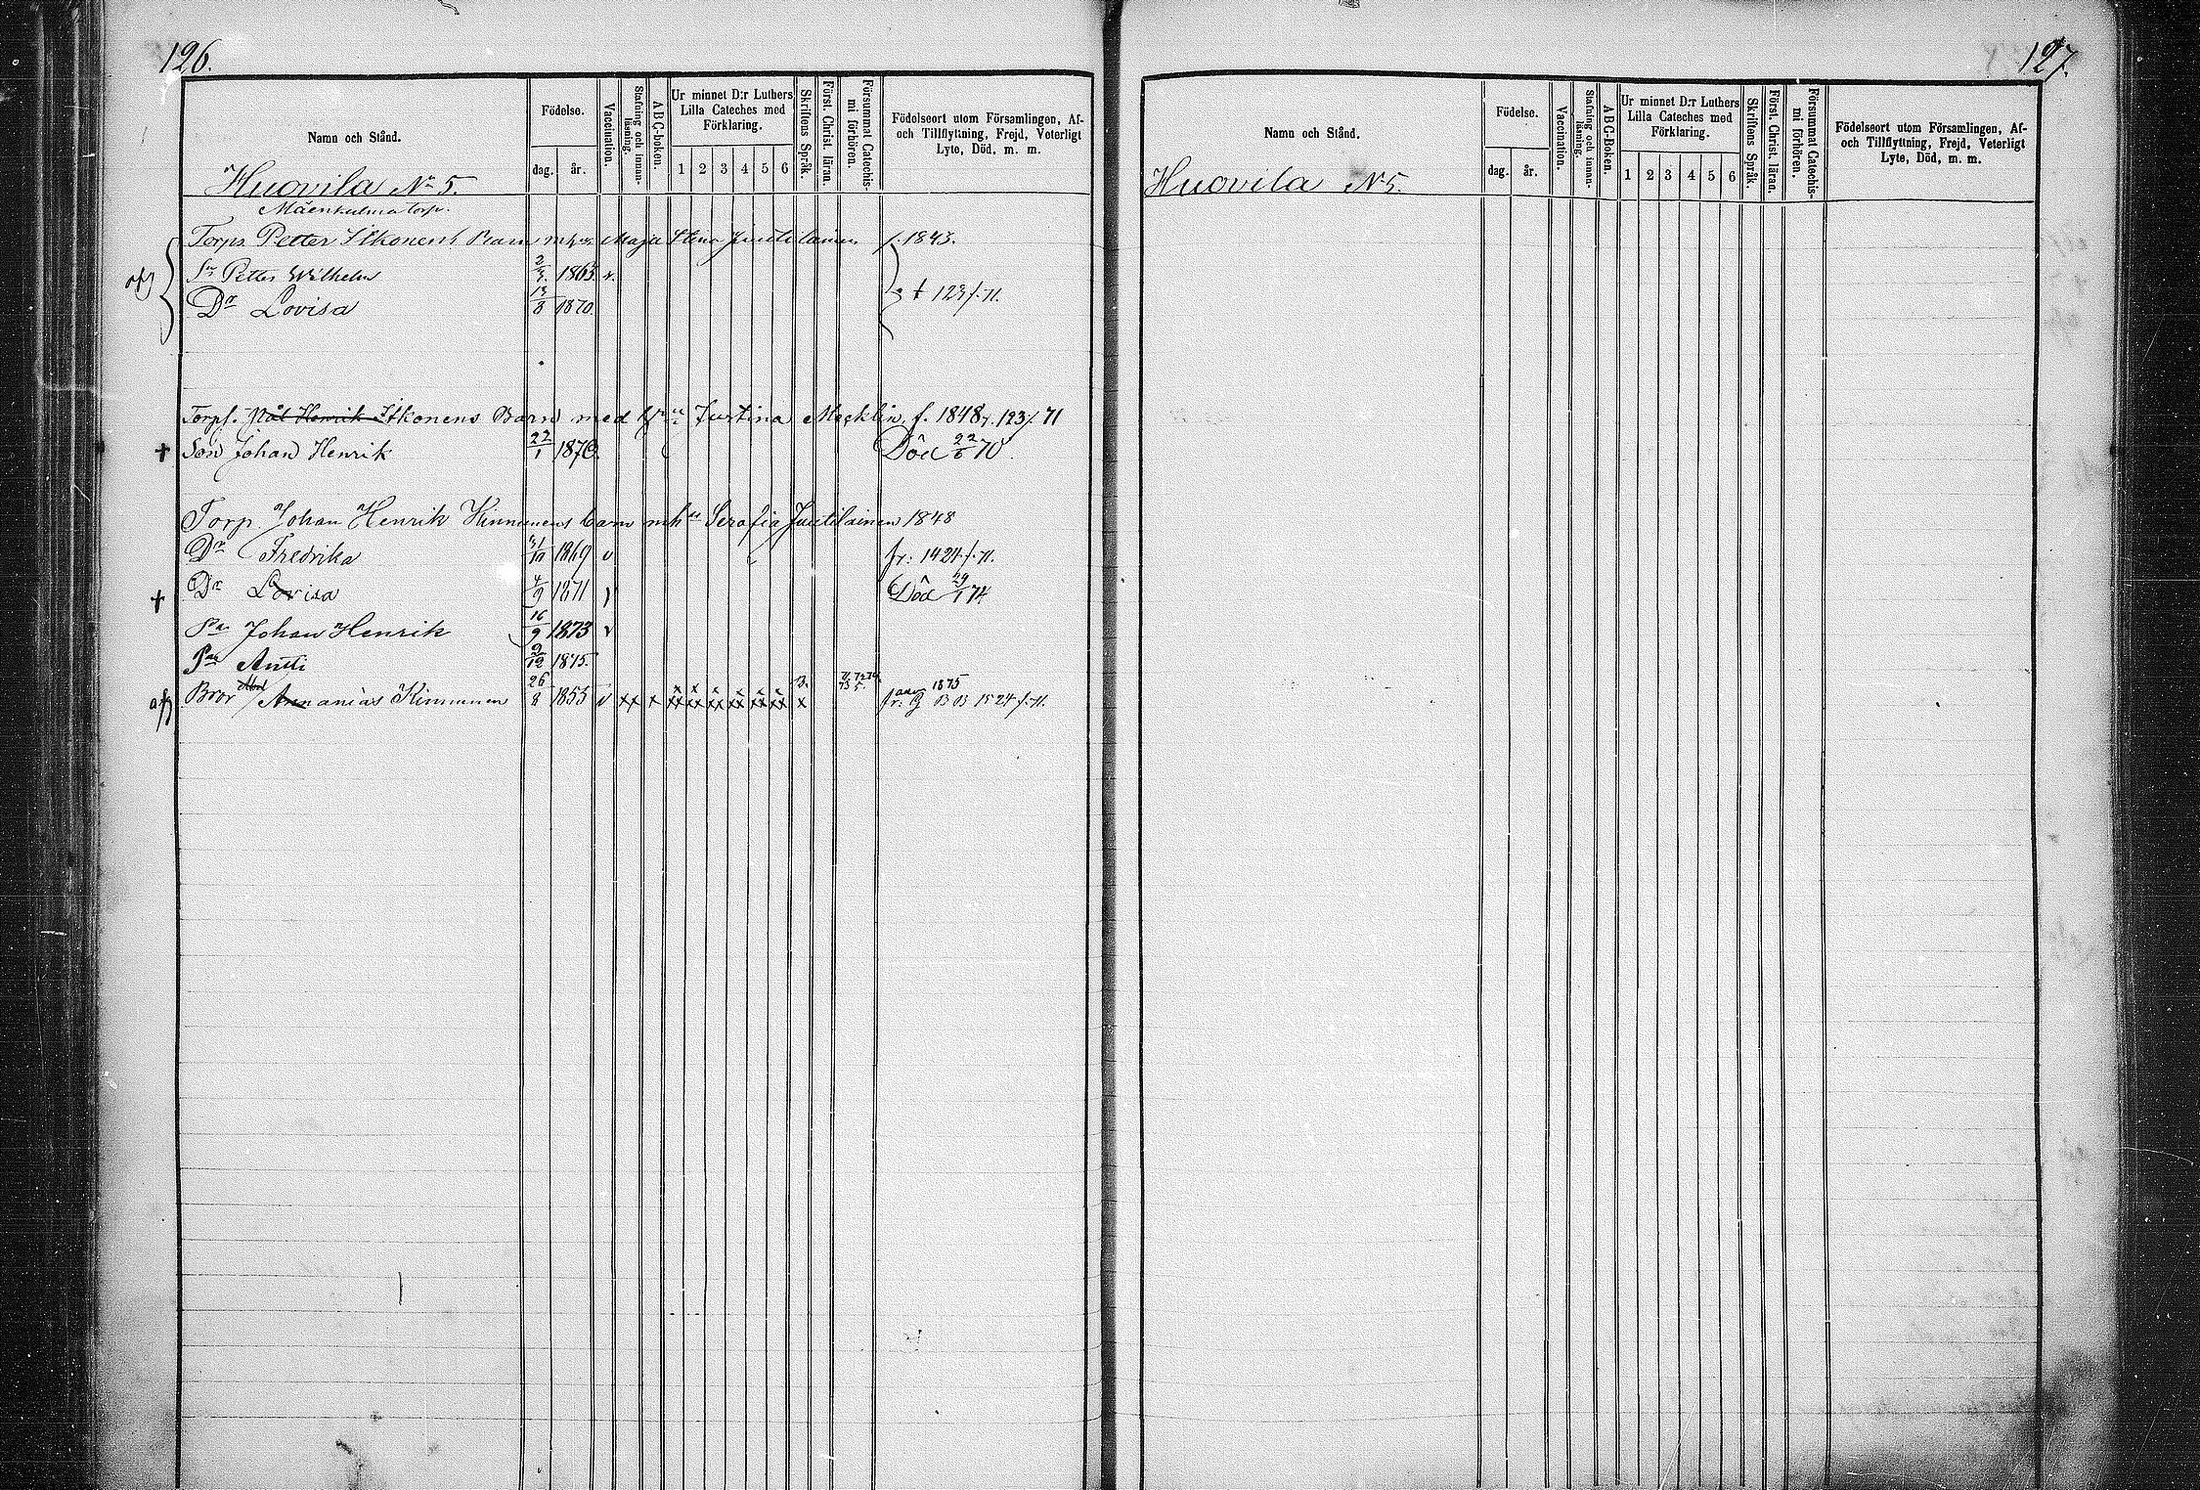 126.
Namn och Stånd.
Födelse.
dag. år.
Vaccination.
Stafning och innanläsning.
ABC-boken.
Ur minnet D:r Luthers Lilla Cateches med Förklaring.
1 2 3 4 5 6
Skriftens Språk.
Först. Christ. läran.
Försummat Catechismi förhören.
Födelseort utom Församlingen, Af- och Tillflyttning, Frejd, Veterligt Lyte, Död, m. m.
Huovila No 5.
Mäenkulma torp.
Torps Petter Itkonens Barn m. h. Maja Stina Juutilainen f. 1843.
afg Sn Petter Wilhelm 2/3. 1865 v.
Dr Lovisa 13/8 1870. t 123/. 71.
Torpf. Pål Henrik Itkonens Barn med hu Justina Mecklin, f. 1848, 123/. 71
† Son Johan Henrik 22/1 1870. Död 22/6 70.
Torp. Johan Henrik Kinnunens barn mh Serafia Juutilainen 1848
Dr Fredrika 31/10 1869 v fr: 142/. 71.
† Dr Lovisa 4/9 1871 v Död 29/1 74
Sn Johan Henrik 16/9 1873 v
Sn Antti 2/12 1875.
afg Bror Abel Ananias Kinnunen 26/8 1855 v xx x xx xx xx xx xx xx x 1875
127.
Namn och Stånd.
Födelse.
dag. år.
Vaccination.
Stafning och innanläsning.
ABC-Boken.
Ur minnet D:r Luthers Lilla Cateches med Förklaring.
1 2 3 4 5 6
Skriftens Språk.
Först. Christ. läran.
Försummat Catechismi förhören.
Födelseort utom Församlingen, Af- och Tillflyttning, Frejd, Veterligt Lyte, Död, m. m.
Huovila N 5.